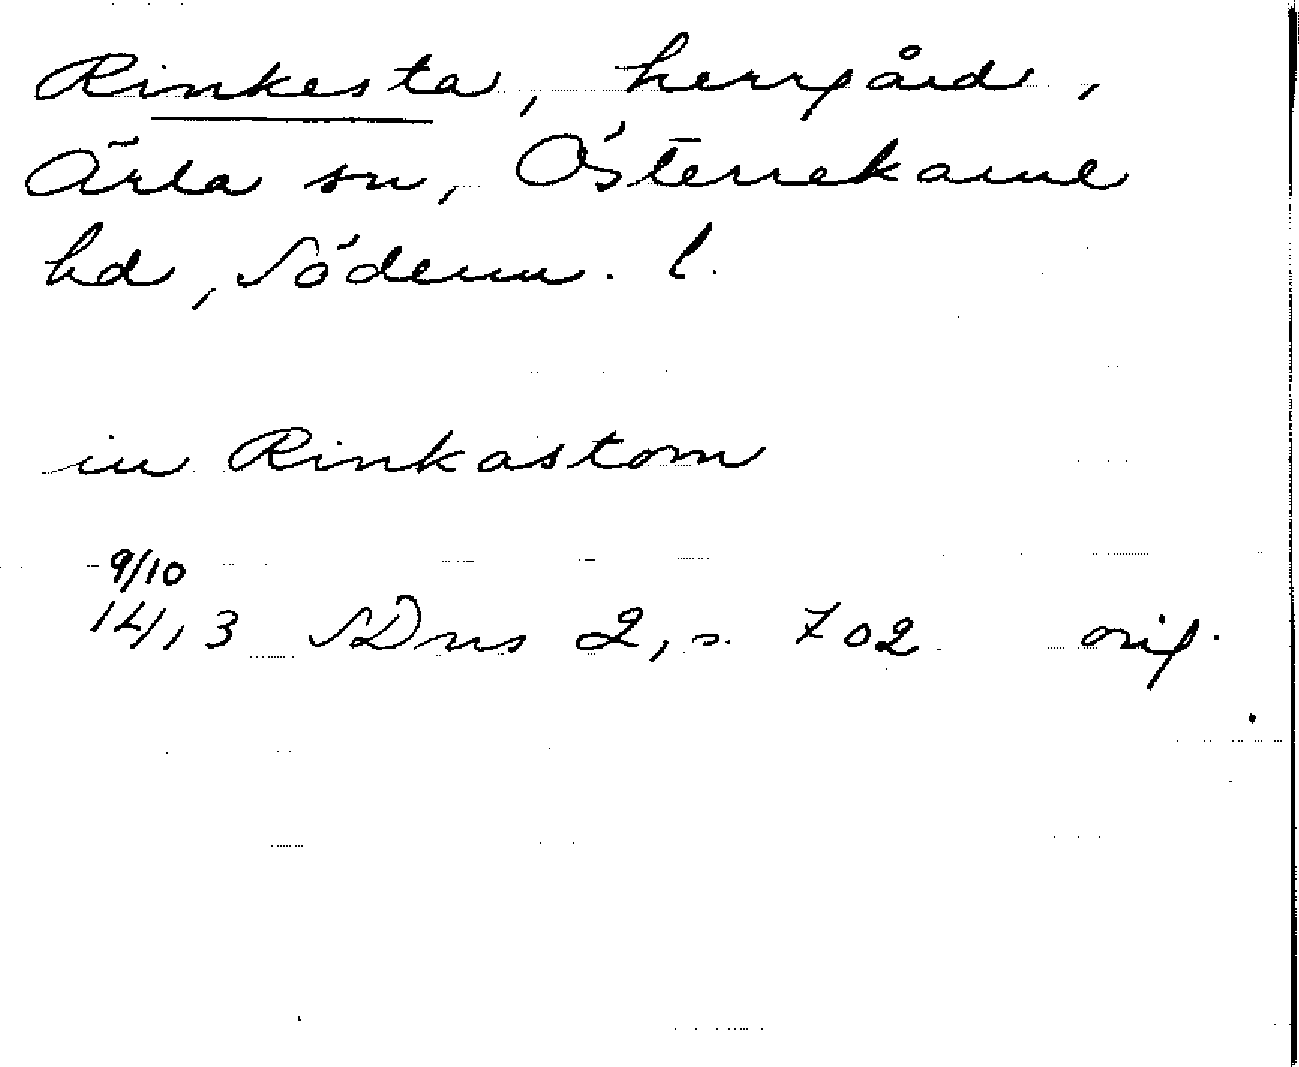 Rinkesta, herrgård,
Ärla sn, Österrekarne
hd, Söderm. l.
in Rinkastom
9/10
1413 SDns 2, s. 702 orig.